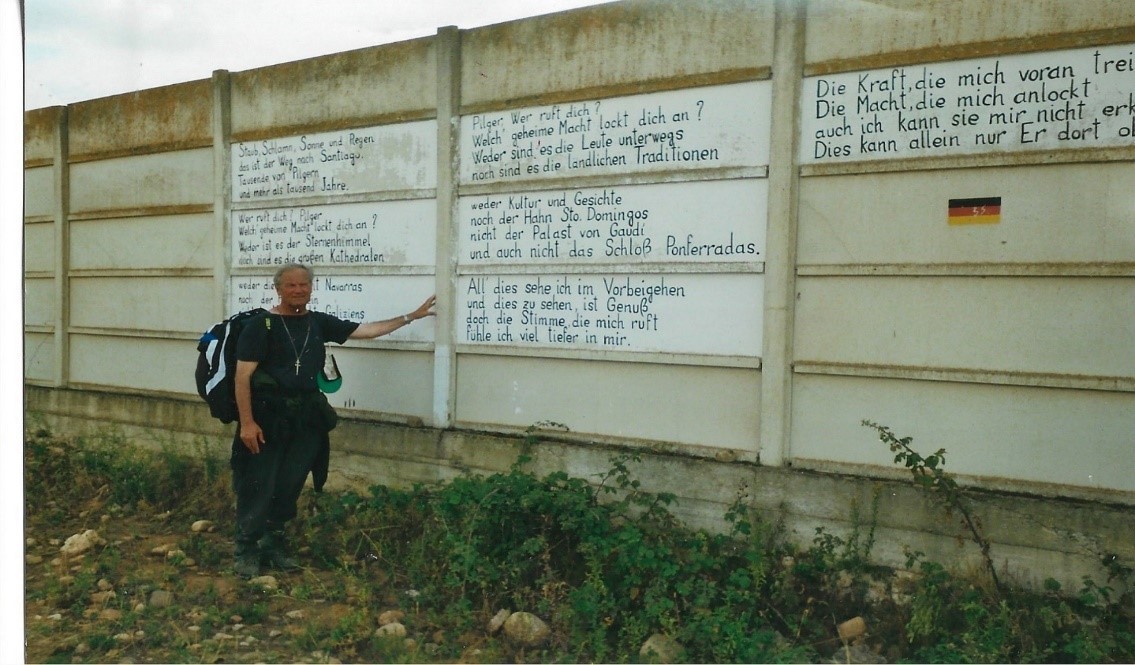 Staub, Schlamn, Sonne und Regen
das ist der Weg nach Santiago.
Tausende von Pilgern
und mehr als tausend Jahre.
Wer ruft dich? Pilger
Welch' geheime Macht lockt dich an?
Weder ist es der Sternenhimmel
noch sind es die großen Kathedralen
weder die Navarras
noch der
Galiziens
Pilger, Wer ruft dich?
Welch' geheime Macht lockt dich an?
Weder sind es die Leute unterwegs
noch sind es die landlichen Traditionen
weder Kultur und Gesichte
noch der Hahn Sto. Domingos
nicht der Palast von Gaudi
und auch nicht das Schloß Ponferradas.
All' dies sehe ich im Vorbeigehen
und dies zu sehen, ist Genuß
doch die Stimme, die mich ruft
fühle ich viel tiefer in mir.
Die Kraft, die mich voran trei
Die Macht, die mich anlockt
auch ich kann sie mir nicht erk
Dies kann allein nur Er dort ob